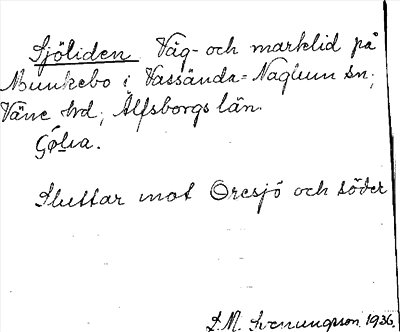 Sjöliden Väg- och marklid på
Munkebo i Vassända-Naglum sn,
Väne hd, Älfsborgs län.
Sluttar mot Öresjö och söder
S.M. Svenungsson 1936.